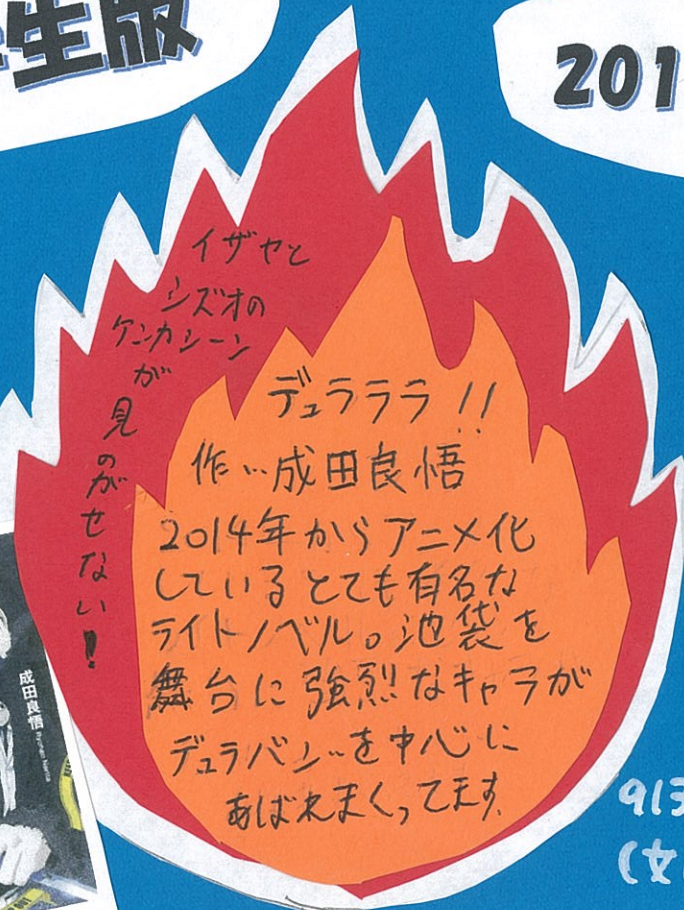 生版
201
イザヤと
シズオの
ケンカシーン
が
見のがせない!
デュラララ!!
作…成田良悟
2014年からアニメ化
しているとても有名な
ライトノベル。池袋を
舞台に強烈なキャラが
デュラハン…を中心に
あばれまくってます。
成田良悟
Ryohgo Narita
913
(文